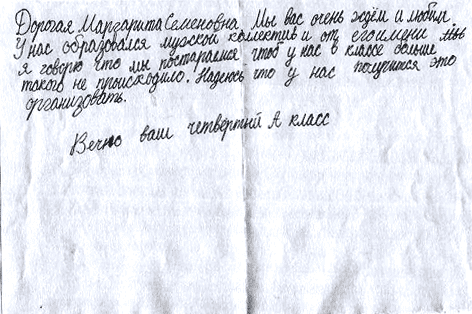 Дорогая Маргарита Семеновна. Мы вас очень ждём и любим.
У нас образовался мужской колектив и от его имени
я говорю что мы постараемся чтоб у нас в классе больше
такого не происходило. Надеюсь что у нас получится это
организовать.
Вечно ваш четвёртый А класс